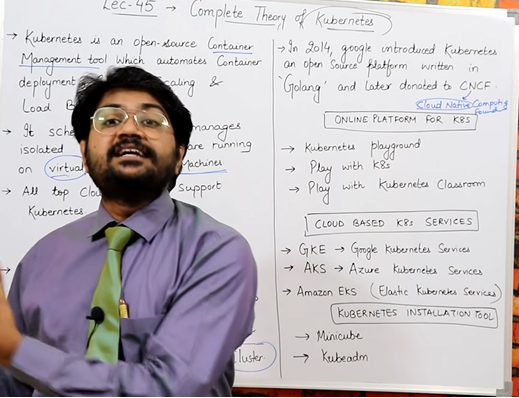 Lec-45 → Complete Theory of Kubernetes
→ Kubernetes is an open-source Container
Management tool which automates Container
deployment
scaling &
Load B
→ It sche
manages
isolated
are running
on virtual
Machines
→ All top Clou
support
Kubernetes
cluster
→ In 2014, google introduced Kubernetes
an open Source platform written in
'Golang' and later donated to CNCF.
Cloud Native Computing
ONLINE PLATFORM FOR K8S
→ Kubernetes playground
→ Play with K8s
→ Play with Kubernetes Classroom
CLOUD BASED K8s SERVICES
→ GKE → Google Kubernetes Services
→ AKS → Azure Kubernetes Services
→ Amazon EKS (Elastic Kubernetes Services)
KUBERNETES INSTALLATION TOOL
→ Minicube
→ Kubeadm